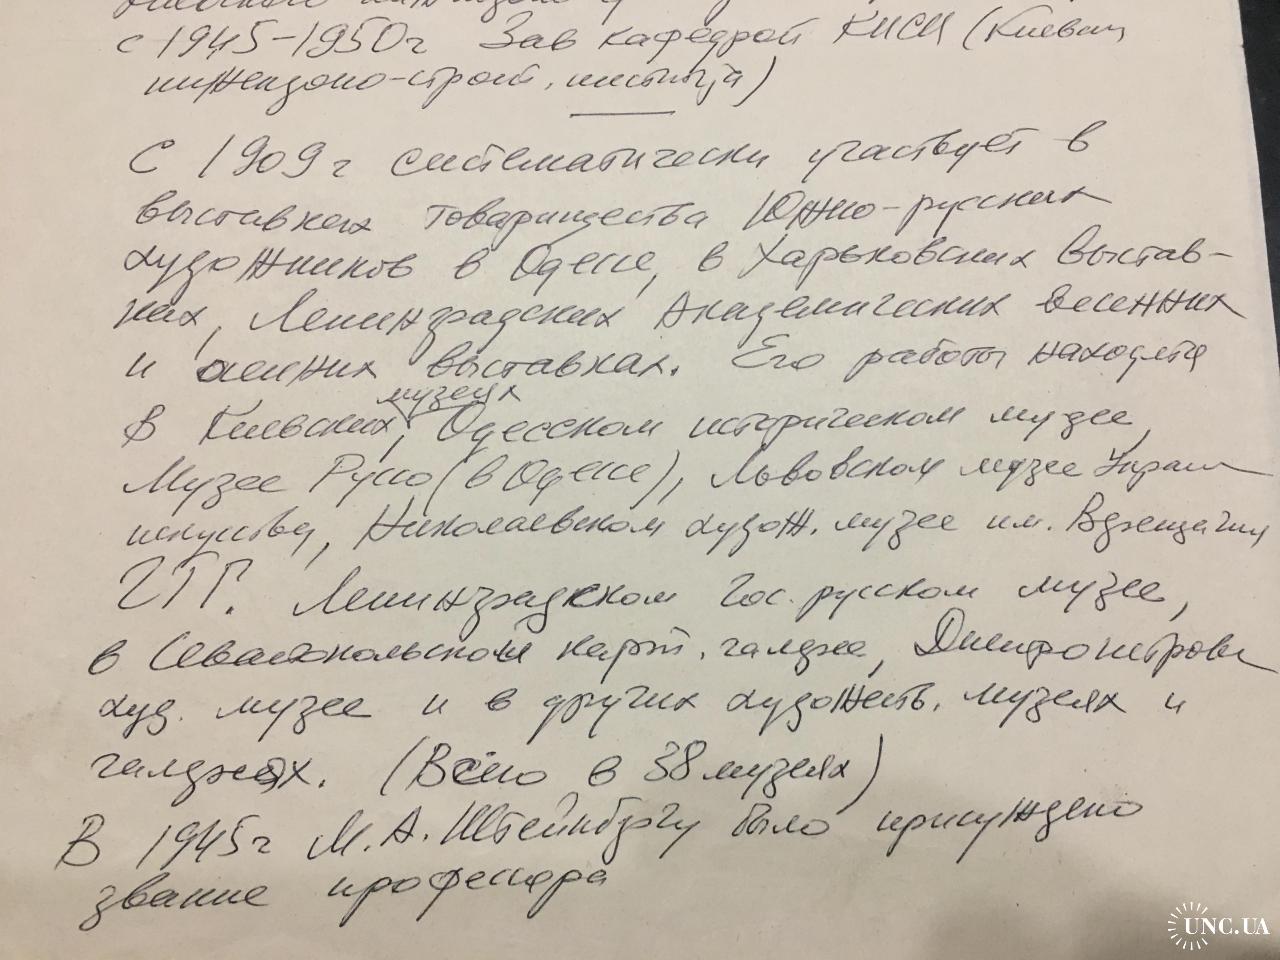 с 1945-1950г Зав кафедрой КИСИ (Киевск
инженерно-строит. института)
С 1909г систематически участвует в
выставках Товарищества Южно-русских
художников в Одессе, в Харьковских выстав-
ках, Ленинградских Академических весенних
и осенних выставках. Его работы находятся
музеях
в Киевских, Одесском историческом музее,
Музее Руссо (в Одессе), Львовском музее Украин
искусства, Николаевском худож. музее им. Верещагина
ГТГ. Ленинградском Гос. русском музее,
в Севастопольском карт. галерее, Днепропетровс
худ. музее и в других художеств. музеях и
галереях. (Всего в 38 музеях)
В 1945г М.А. Штейнбергу было присуждено
звание профессора
UNC.UA